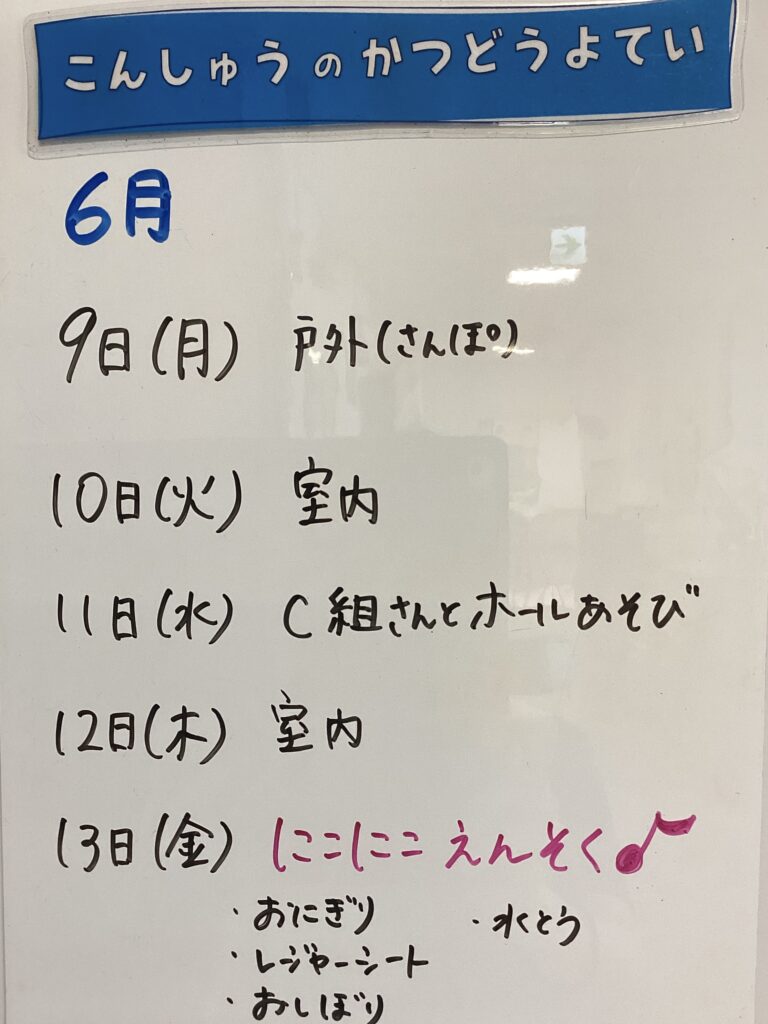 こんしゅうのかつどうよてい
6月
9日(月) 戸外(さんぽ)
10日(火) 室内
11日(水) C組さんとホールあそび
12日(木) 室内
13日(金) にこにこ えんそく♪
・おにぎり ・水とう
・レジャーシート
・おしぼり